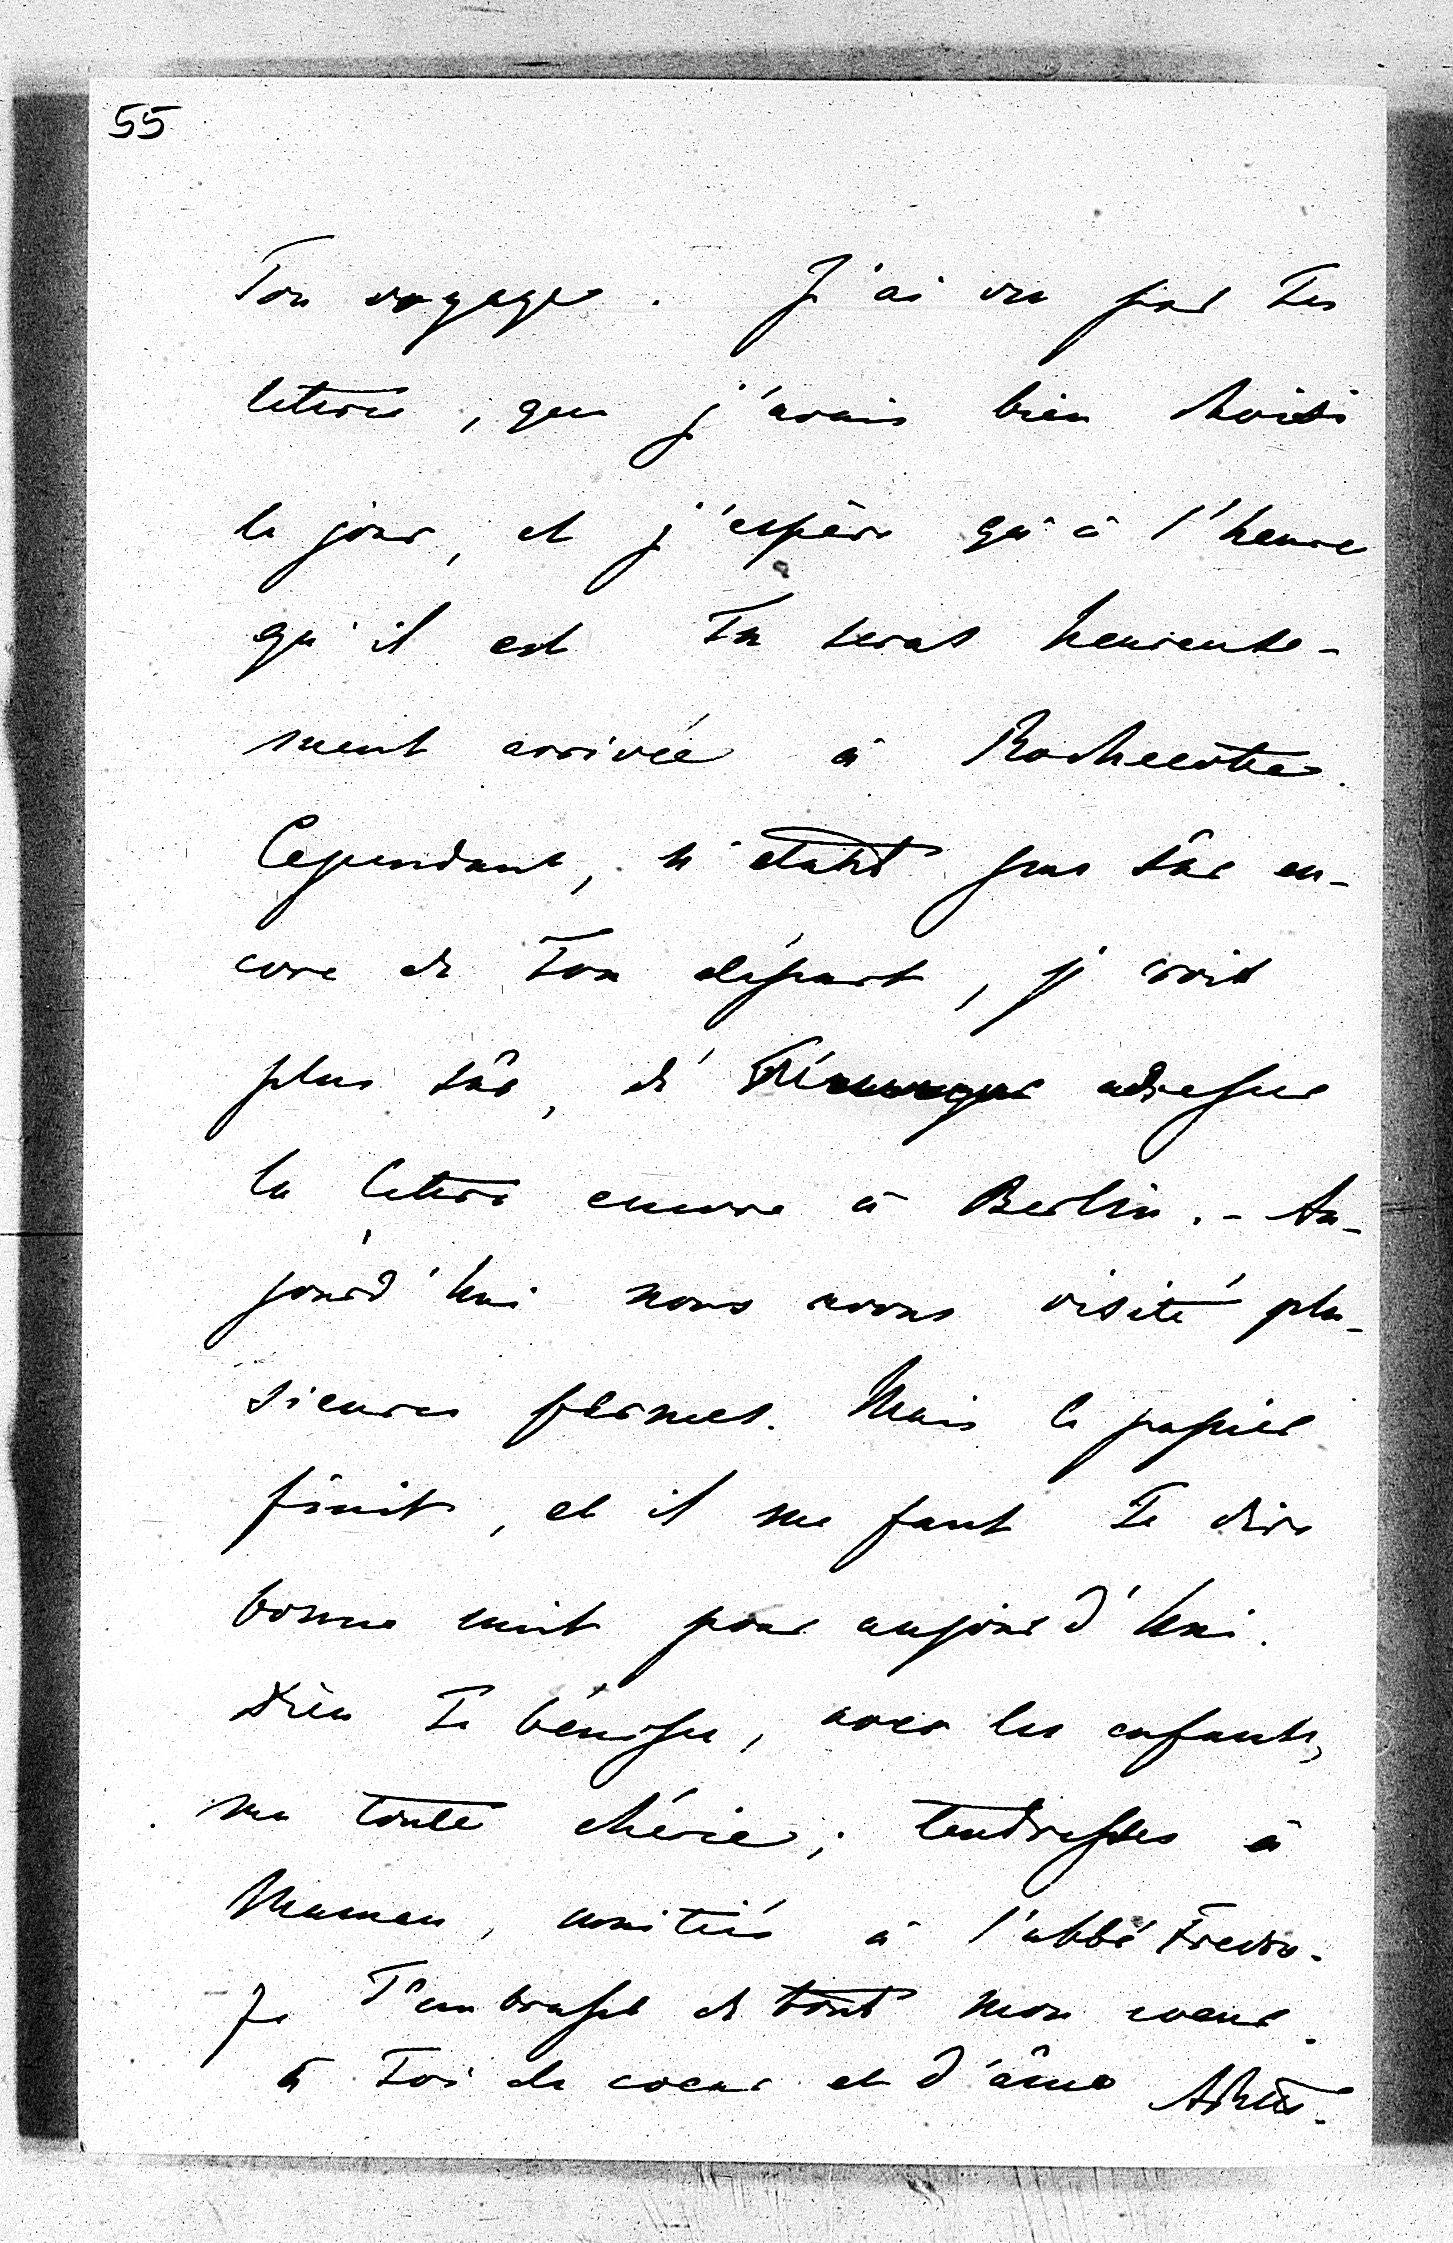 55
Ton voyage. J'ai vu par Tes
lettres, que j'avais bien choisi
le jour, et j'espère qu'à l'heure
qu'il est Tu seras heureuse-
ment arrivée à Rochecotte.
Cependant, n'étant pas sûr en-
core de Ton départ, je crois
plus sûr, de adresser
la lettre encore à Berlin. - Au-
jourd'hui nous avons visité plu-
sieures fermes. Mais le papier
finit, et il me faut Te dire
bonne nuit pour aujourd'hui.
Dieu Te bénisse, avec les enfants,
ma toute chérie; tendresses à
Maman, amitiés à l'abbé Fredro.
Je T'embrasse de tout mon coeur.
à Toi de coeur et d'âme